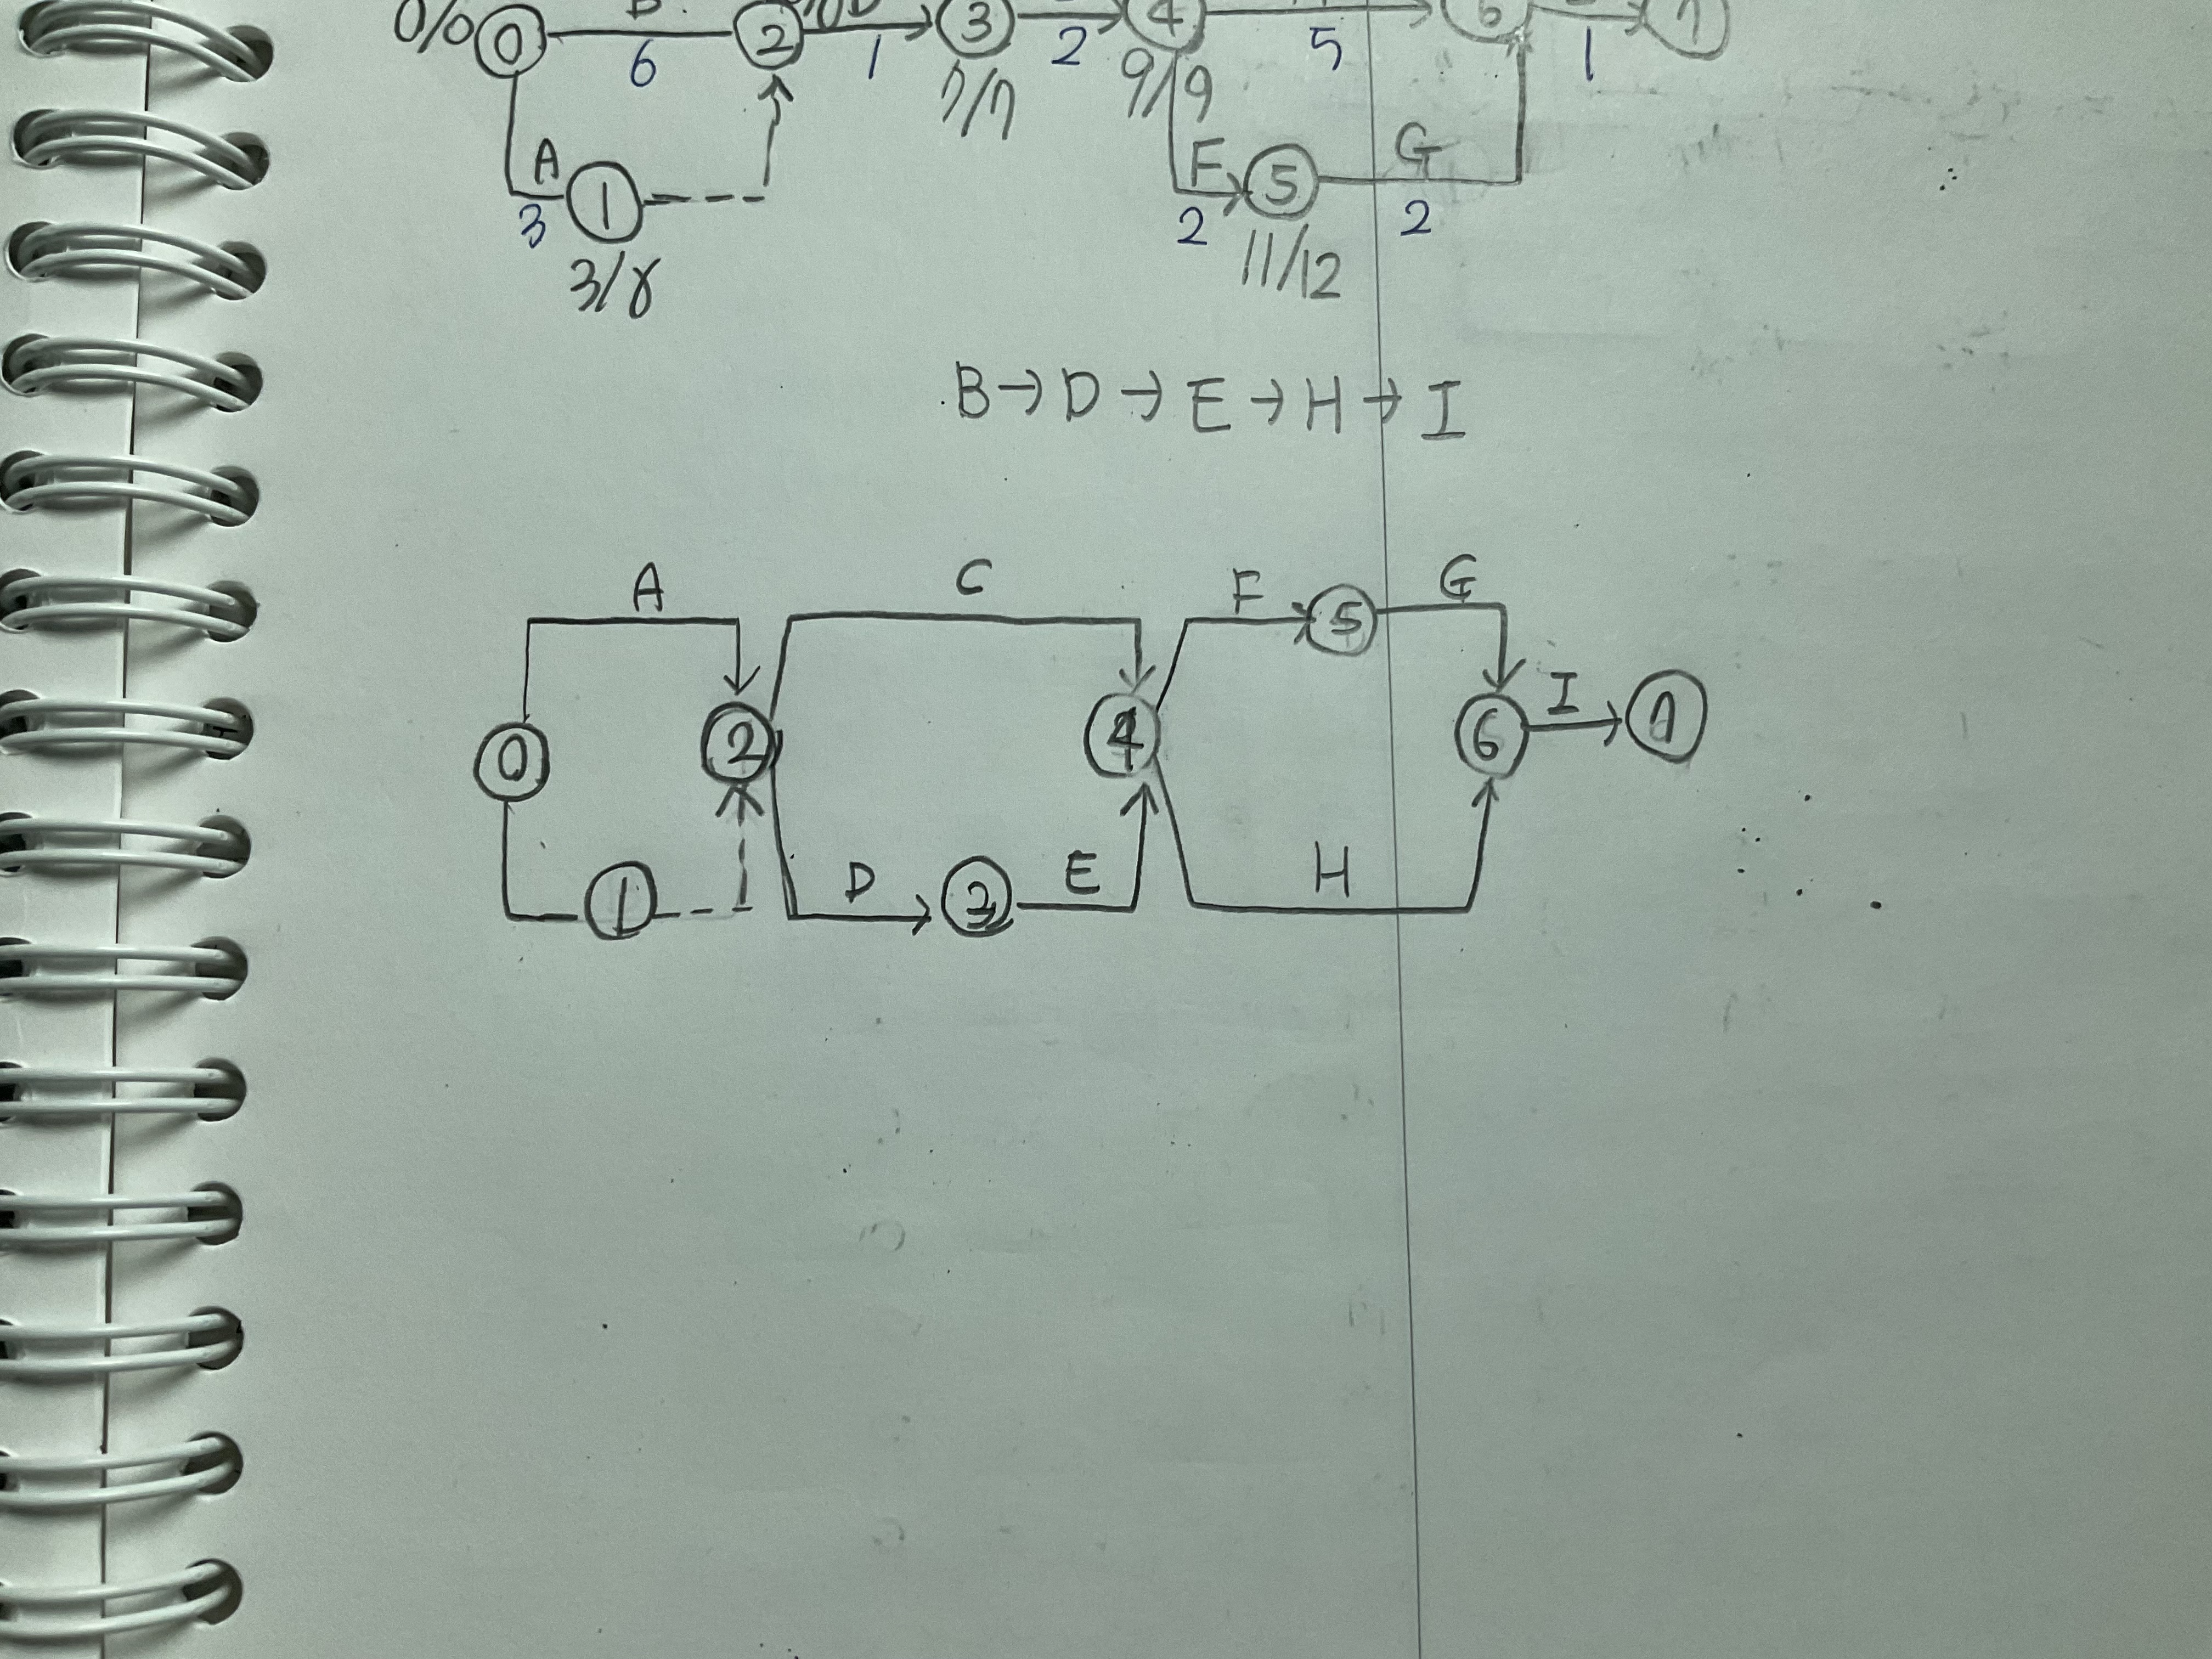 0/0 0 2 D 3 4 6 7
6 1 2 5 1
7/7 9/9
A 1 F 5 G
3 2 2
3/8 11/12
B → D → E → H → I
A C F 5 G
0 2 4 6 I 7
1 D 3 E H